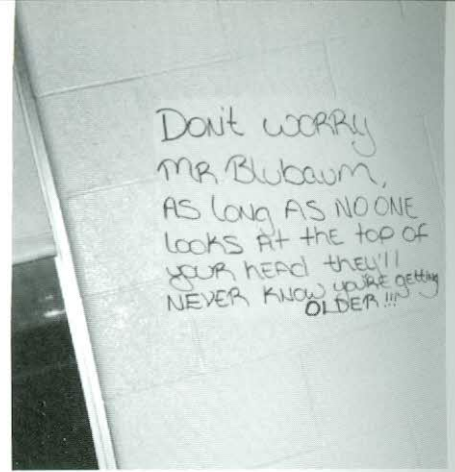 Don't WORRY
MR. Blubaum,
AS LONG AS NO ONE
LOOKS At the top of
your hEAD they'll
NEVER KNOW you'RE getting
OLDER!!!